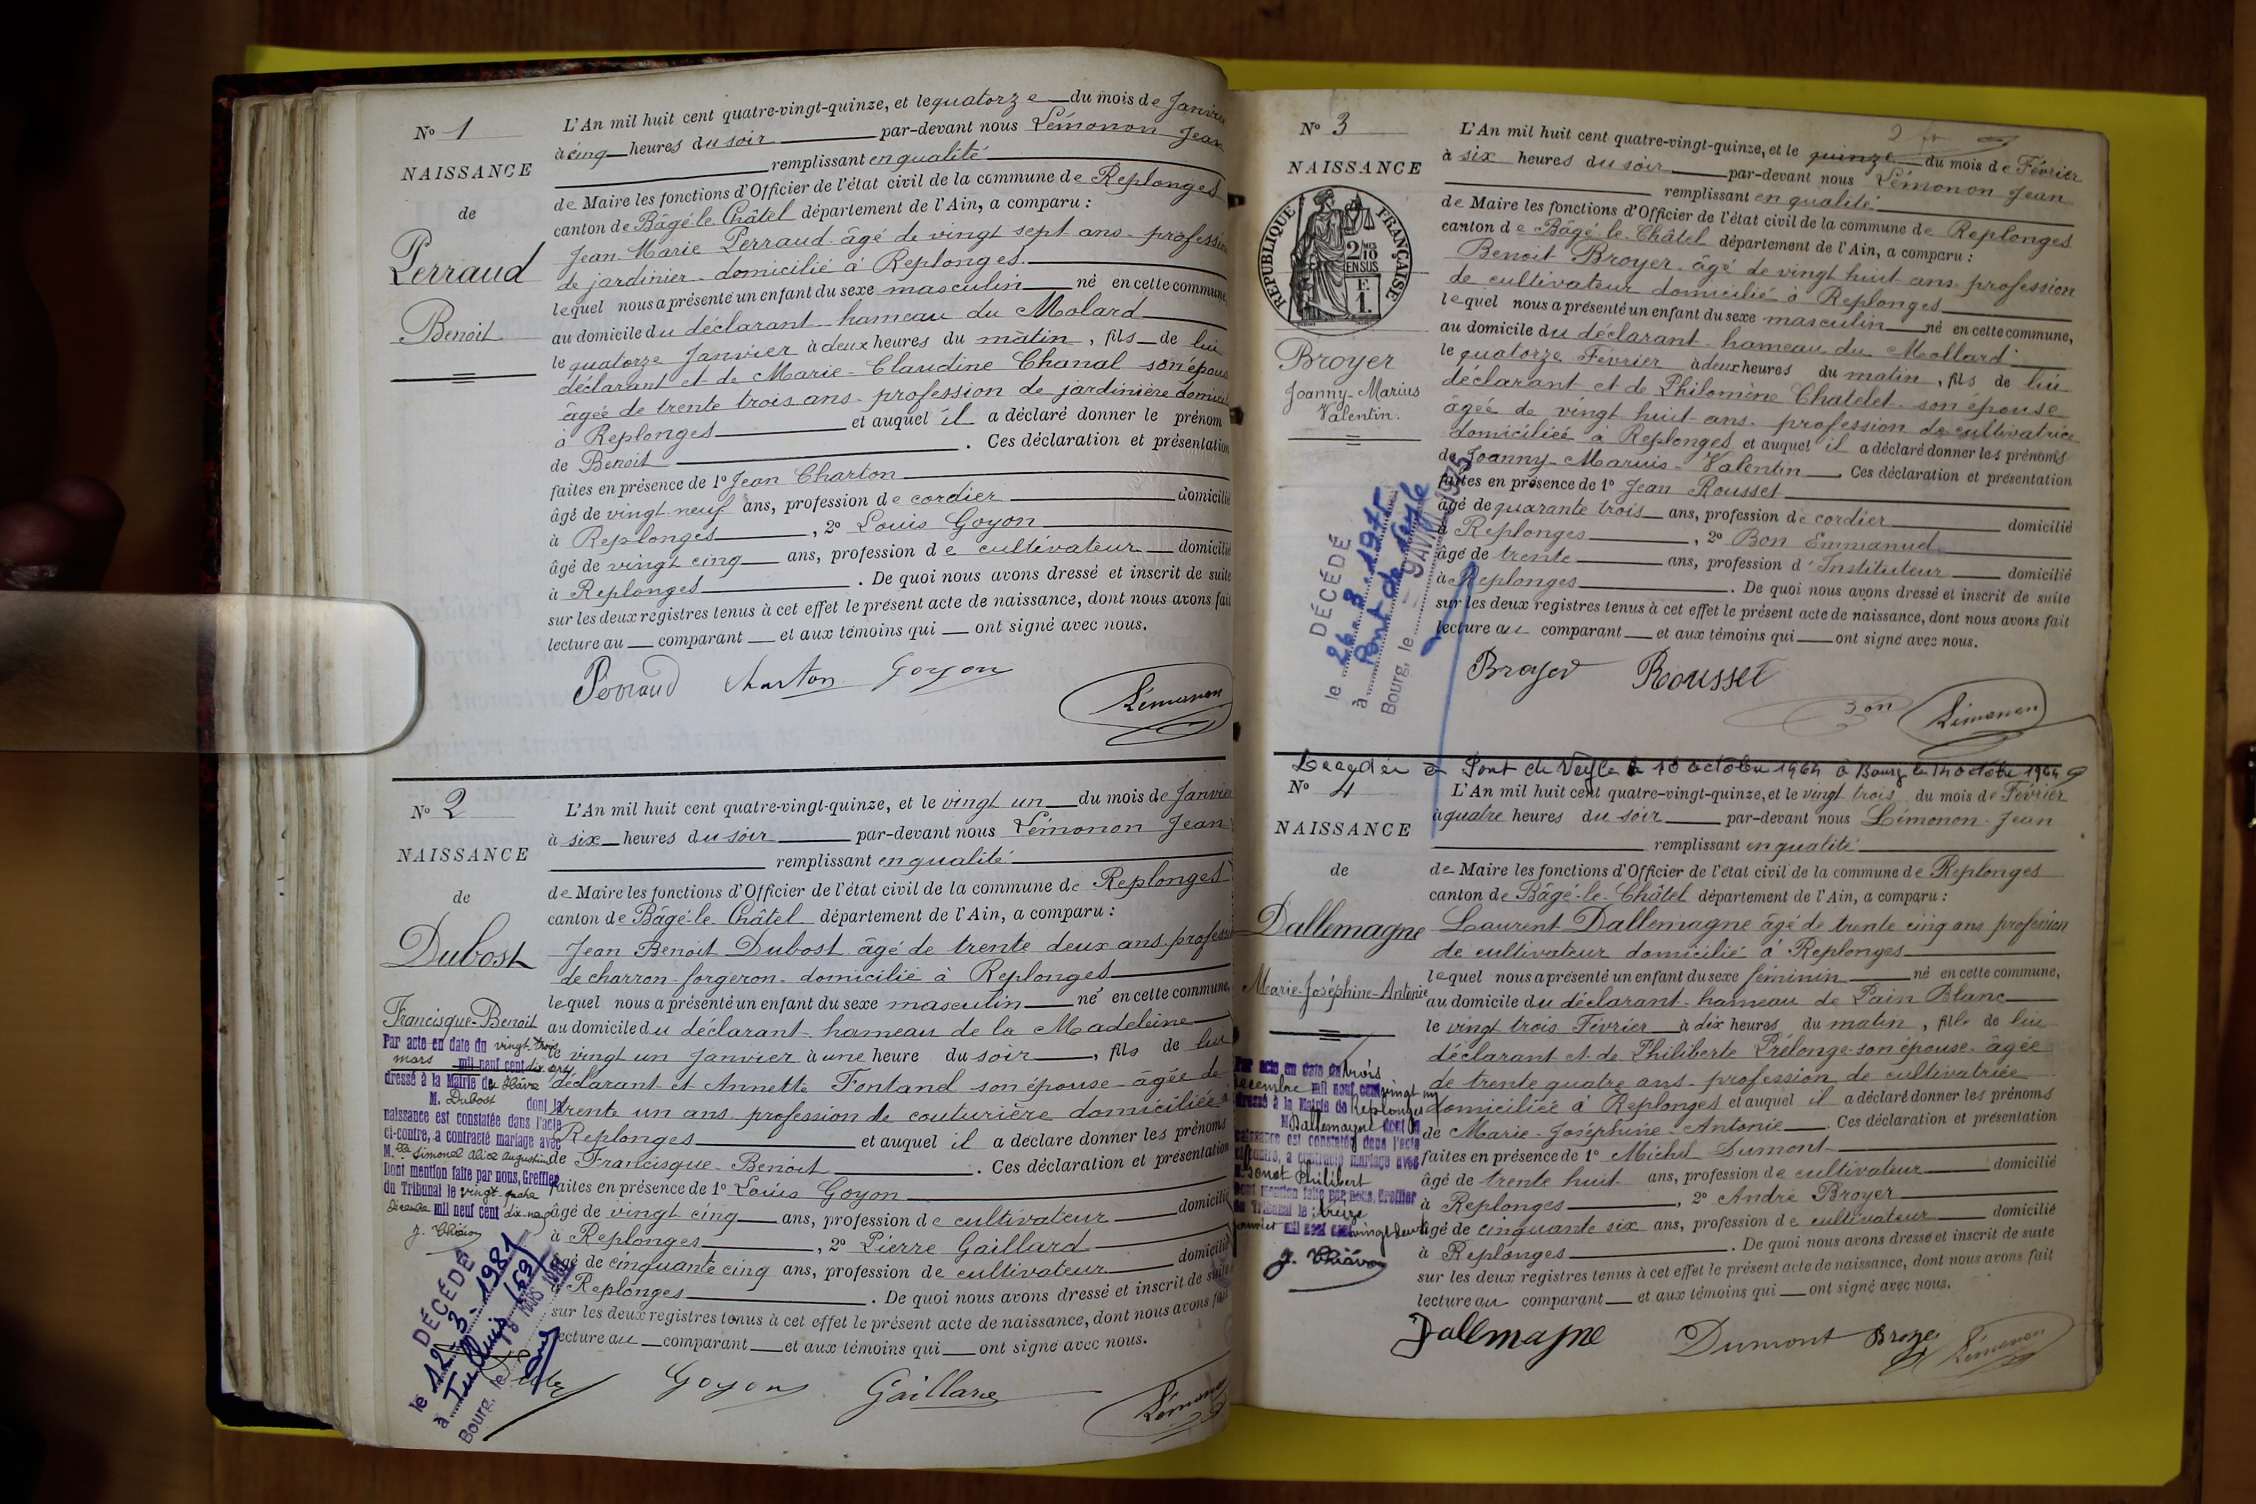 N° 1
NAISSANCE
de
Perraud
Benoit
L'An mil huit cent quatre-vingt-quinze, et le quatorze du mois de Janvier
à cinq heures du soir par-devant nous Lémonon Jean
remplissant en qualité
de Maire les fonctions d'Officier de l'état civil de la commune de Replonges
canton de Bâgé-le-Châtel département de l'Ain, a comparu :
Jean-Marie Perraud âgé de vingt sept ans profession
de jardinier domicilié à Replonges
lequel nous a présenté un enfant du sexe masculin né en cette commune,
au domicile du déclarant hameau du Molard
le quatorze Janvier à deux heures du matin, fils de lui
déclarant et de Marie-Claudine Chanal son épouse
âgée de trente trois ans profession de jardinière domicil
à Replonges et auquel il a déclaré donner le prénom
de Benoit . Ces déclaration et présentation
faites en présence de 1° Jean Charton
âgé de vingt neuf ans, profession de cordier domicilié
à Replonges , 2° Louis Goyon
âgé de vingt cinq ans, profession de cultivateur domicilié
à Replonges . De quoi nous avons dressé et inscrit de suite
sur les deux registres tenus à cet effet le présent acte de naissance, dont nous avons fait
lecture au comparant et aux témoins qui ont signé avec nous.
Perraud Charton Goyon
Lémonon
N° 2
NAISSANCE
de
Dubost
Francisque-Benoit
L'An mil huit cent quatre-vingt-quinze, et le vingt un du mois de Janvier
à six heures du soir par-devant nous Lémonon Jean
remplissant en qualité
de Maire les fonctions d'Officier de l'état civil de la commune de Replonges
canton de Bâgé-le-Châtel département de l'Ain, a comparu :
Jean Benoit Dubost âgé de trente deux ans profession
de charron-forgeron domicilié à Replonges
lequel nous a présenté un enfant du sexe masculin né en cette commune,
au domicile du déclarant hameau de la Madeleine
le vingt un Janvier à une heure du soir , fils de lui
déclarant et Annette Fontand son épouse âgée de
trente un ans profession de couturière domiciliée à
Replonges et auquel il a déclaré donner les prénoms
de Francisque-Benoit . Ces déclaration et présentation
faites en présence de 1° Louis Goyon
âgé de vingt cinq ans, profession de cultivateur domicilié
à Replonges , 2° Pierre Gaillard
âgé de cinquante cinq ans, profession de cultivateur domicilié
à Replonges . De quoi nous avons dressé et inscrit de suite
sur les deux registres tenus à cet effet le présent acte de naissance, dont nous avons fait
lecture au comparant et aux témoins qui ont signé avec nous.
Goyon Gaillard
Lémonon
Par acte en date du vingt-trois
mars mil neuf cent dix sept
dressé à la Mairie du Hâvre
M. Dubost dont la
naissance est constatée dans l'acte
ci-contre, a contracté mariage avec
M.elle Simonel Alice Augustine
Dont mention faite par nous, Greffier
du Tribunal le vingt-quatre
mil neuf cent dix-neuf
J. Chiâron
DÉCÉDÉ
le 12.3.1981
à Tullins
Bourg, le
N° 3
NAISSANCE
RÉPUBLIQUE FRANÇAISE
2/10 EN SUS
F.
1.
Broyer
Joanny-Marius
Valentin.
L'An mil huit cent quatre-vingt-quinze, et le quinze du mois de Février
à six heures du soir par-devant nous Lémonon Jean
remplissant en qualité
de Maire les fonctions d'Officier de l'état civil de la commune de Replonges
canton de Bâgé-le-Châtel département de l'Ain, a comparu :
Benoit Broyer âgé de vingt huit ans profession
de cultivateur domicilié à Replonges
lequel nous a présenté un enfant du sexe masculin né en cette commune,
au domicile du déclarant hameau du Mollard
le quatorze Février à deux heures du matin, fils de lui
déclarant et de Philomène Chatelet son épouse
âgée de vingt huit ans profession de cultivatrice
domiciliée à Replonges et auquel il a déclaré donner les prénoms
de Joanny-Marius-Valentin . Ces déclaration et présentation
faites en présence de 1° Jean Rousset
âgé de quarante trois ans, profession de cordier domicilié
à Replonges , 2° Bon Emmanuel
âgé de trente ans, profession d'Instituteur domicilié
à Replonges . De quoi nous avons dressé et inscrit de suite
sur les deux registres tenus à cet effet le présent acte de naissance, dont nous avons fait
lecture au comparant et aux témoins qui ont signé avec nous.
Broyer Rousset
Bon Lémonon
DÉCÉDÉ
le 26.3.1975
à Pont de Veyle
Bourg, le 9 AVR 1975
Décédée à Pont de Veyle le 10 octobre 1964 à Bourg le 14 octobre 1964
N° 4
NAISSANCE
de
Dallemagne
Marie-Joséphine-Antonie
L'An mil huit cent quatre-vingt-quinze, et le vingt trois du mois de Février
à quatre heures du soir par-devant nous Lémonon Jean
remplissant en qualité
de Maire les fonctions d'Officier de l'état civil de la commune de Replonges
canton de Bâgé-le-Châtel département de l'Ain, a comparu :
Laurent Dallemagne âgé de trente cinq ans profession
de cultivateur domicilié à Replonges
lequel nous a présenté un enfant du sexe féminin né en cette commune,
au domicile du déclarant hameau de Pain Blanc
le vingt trois Février à dix heures du matin , fille de lui
déclarant et de Philiberte Prélonge son épouse âgée
de trente quatre ans profession de cultivatrice
domiciliée à Replonges et auquel il a déclaré donner les prénoms
de Marie-Joséphine-Antonie . Ces déclaration et présentation
faites en présence de 1° Michel Dumont
âgé de trente huit ans, profession de cultivateur domicilié
à Replonges , 2° André Broyer
âgé de cinquante six ans, profession de cultivateur domicilié
à Replonges . De quoi nous avons dressé et inscrit de suite
sur les deux registres tenus à cet effet le présent acte de naissance, dont nous avons fait
lecture au comparant et aux témoins qui ont signé avec nous.
Dallemagne Dumont Broyer
Lémonon
Par acte en date du trois
décembre mil neuf cent vingt un
dressé à la Mairie de Replonges
M Dallemagne dont la
naissance est constatée dans l'acte
ci-contre, a contracté mariage avec
Philibert
Dont mention faite par nous, Greffier
du Tribunal le treize
janvier mil neuf cent vingt deux
J. Chiâron